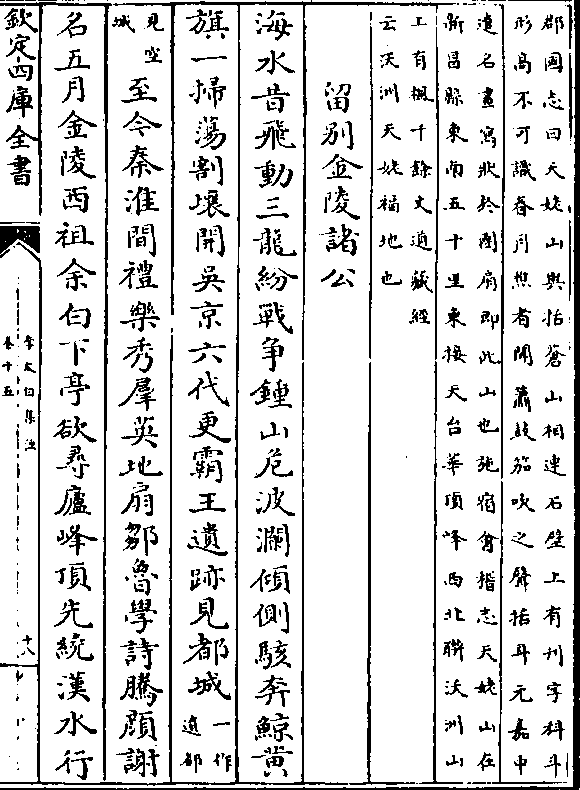 郡國志曰天姥山與括蒼山相連石壁上有刋字科斗
形高不可識春月樵者聞簫鼓笳吹之聲括耳元嘉中
遣名畫寫狀於團扇即此山也施宿會稽志天姥山在
新昌縣東南五十里東接天台華頂峰西北聯沃洲山
上有楓千餘丈道藏經
云沃洲天姥福地也
留別金陵諸公
海水昔飛動三龍紛戰爭鍾山危波瀾傾側駭奔鯨黄
旗一掃蕩割壤開吳京六代更霸王遺跡見都城一作遺都
見空城至今秦淮間禮樂秀羣英地扇鄒魯學詩騰顔謝
名五月金陵西祖余白下亭欲尋廬峰頂先繞漢水行
欽定四庫全書
李太白集注
卷十五
十八